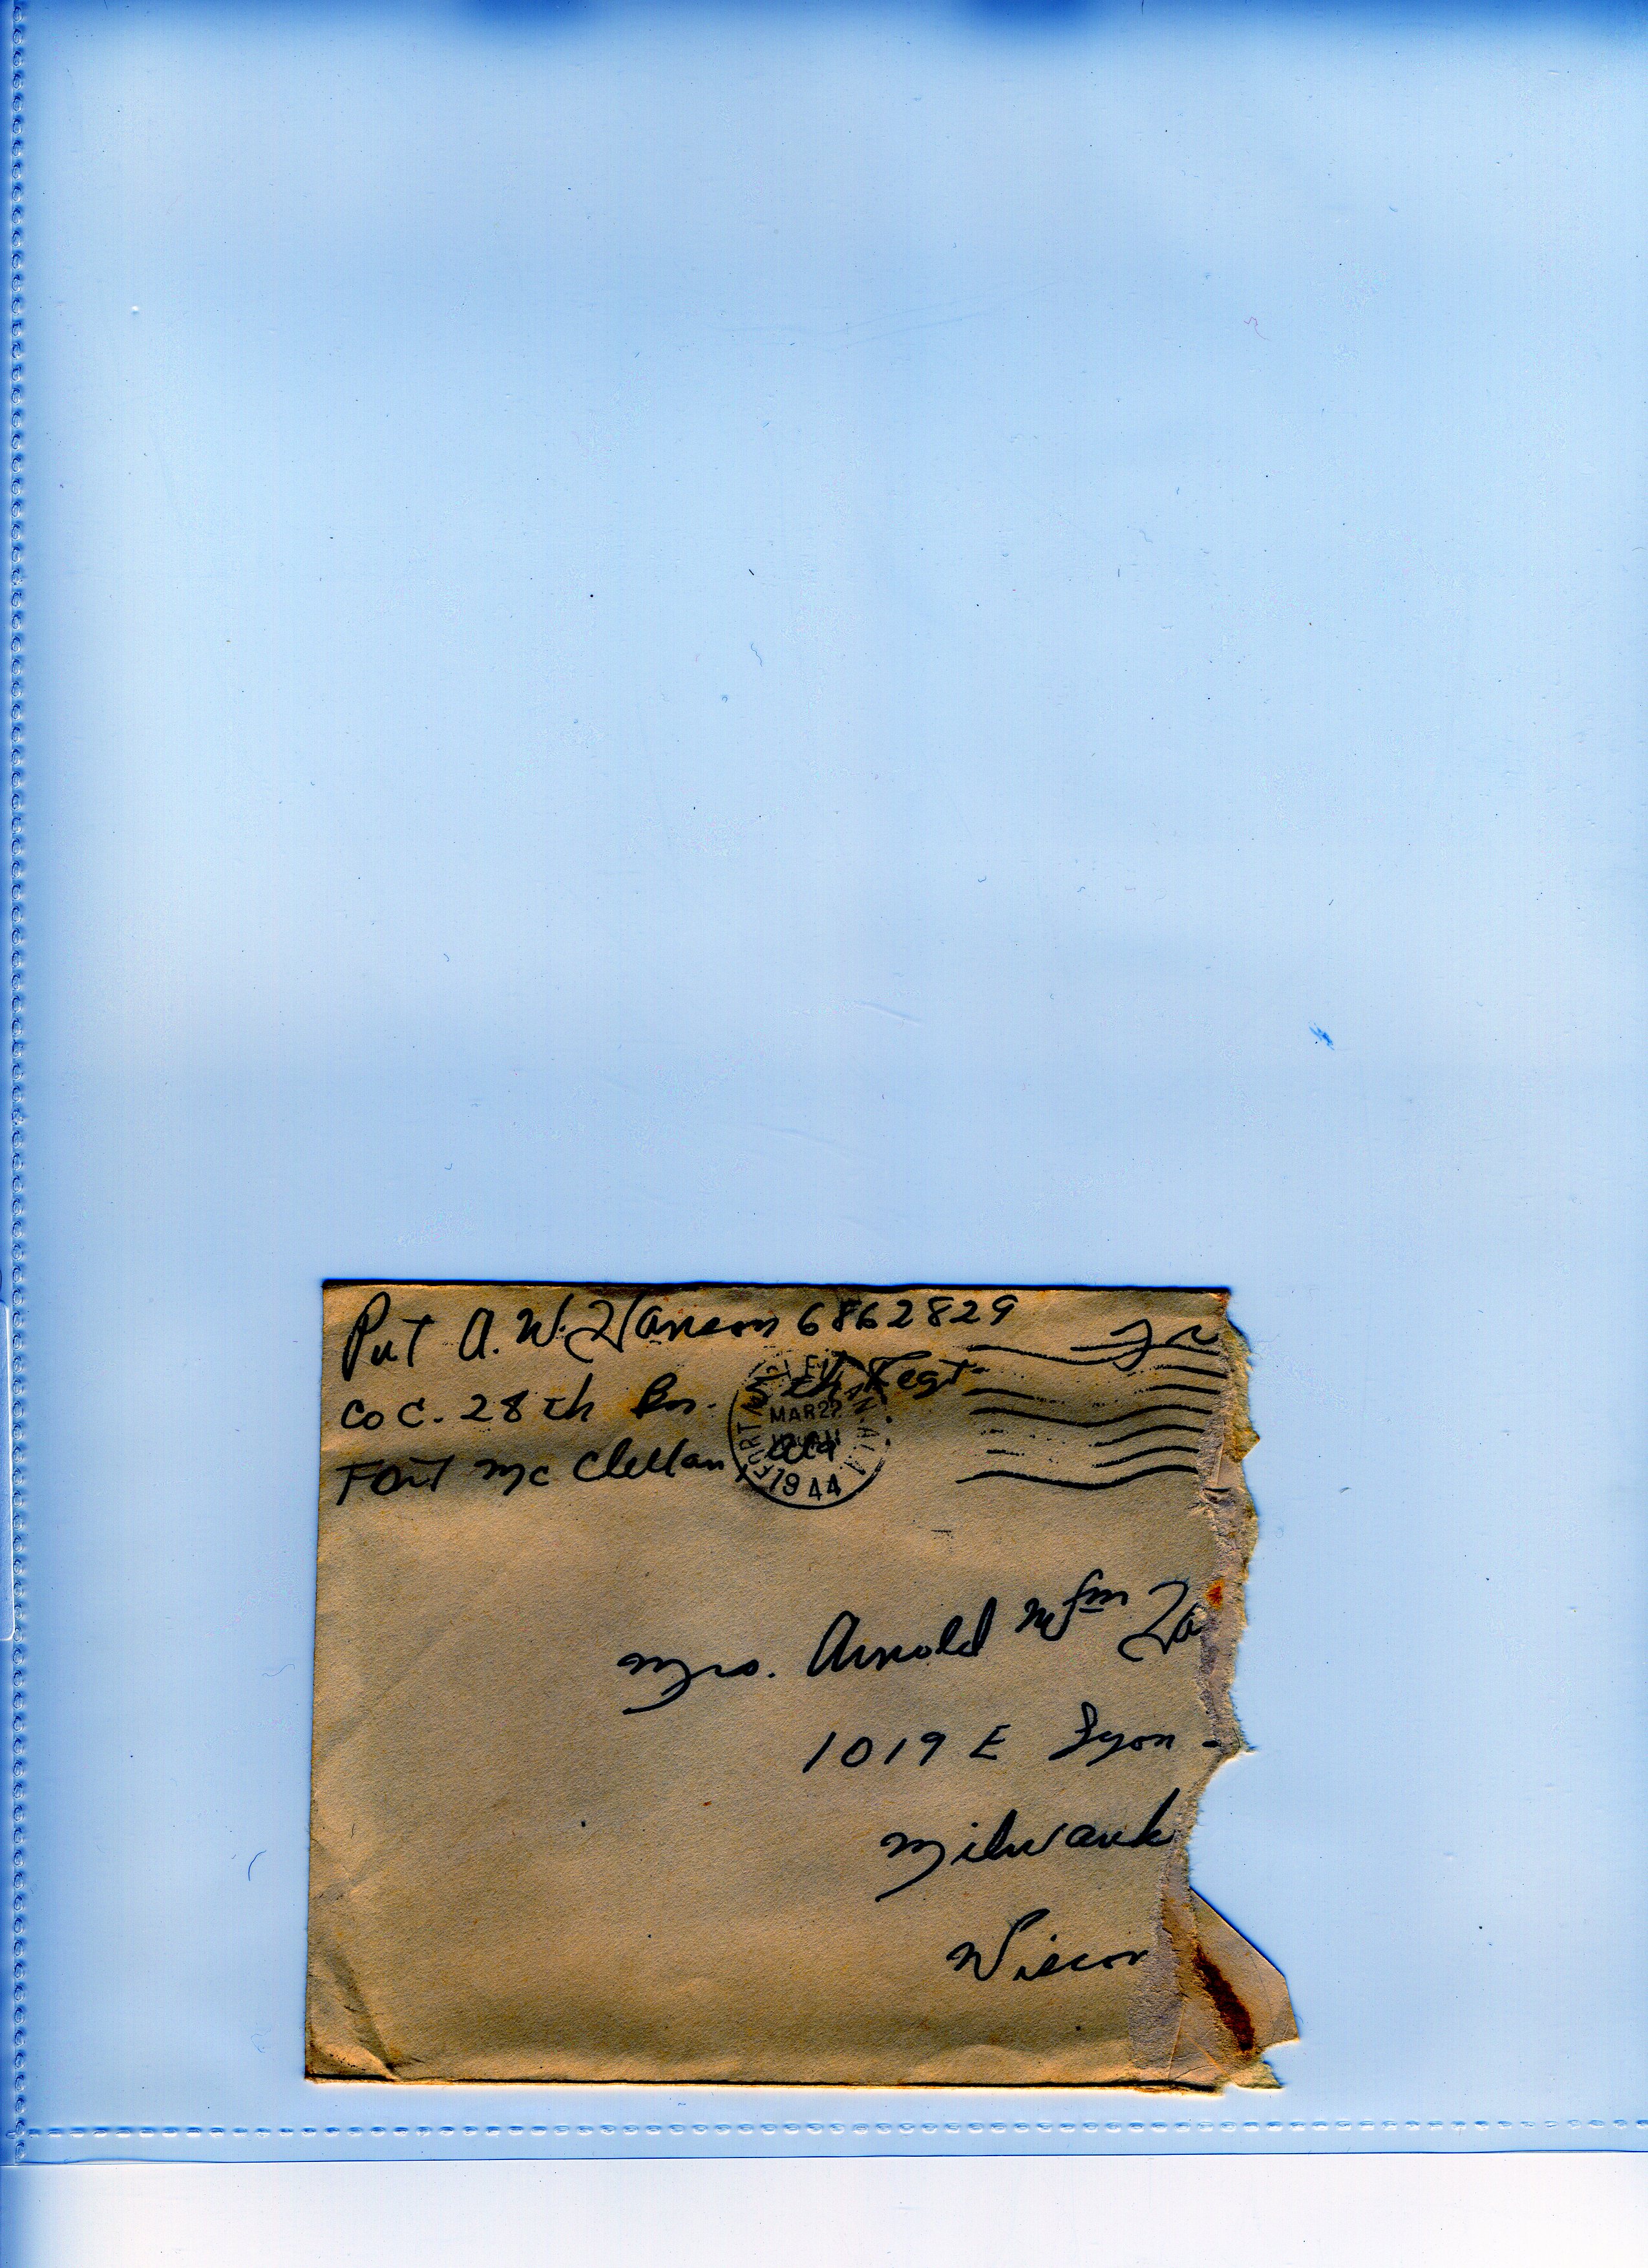 Pvt A. W. Hanson 6862829
Co C. 28th Bn. th Regt.
Fort Mc Clellan Ala
MAR 22
1944
Mrs. Arnold Wm Ha
1019 E Lyon -
Milwauk
Wiscon